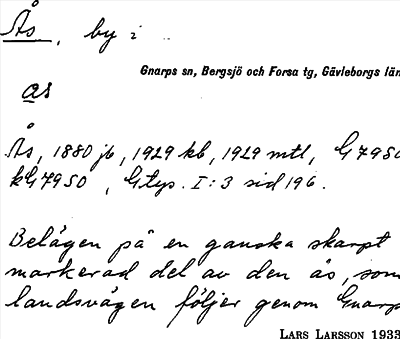 Ås, by i
Gnarps sn, Bergsjö och Forsa tg, Gävleborgs län
as
Ås, 1880 jb, 1929 kb, 1929 mtl, G7950
kG7950, Gtys. I:3 sid 196.
Belägen på en ganska skarpt
markerad del av den ås, som
landsvägen följer genom Gnarp
LARS LARSSON 1933